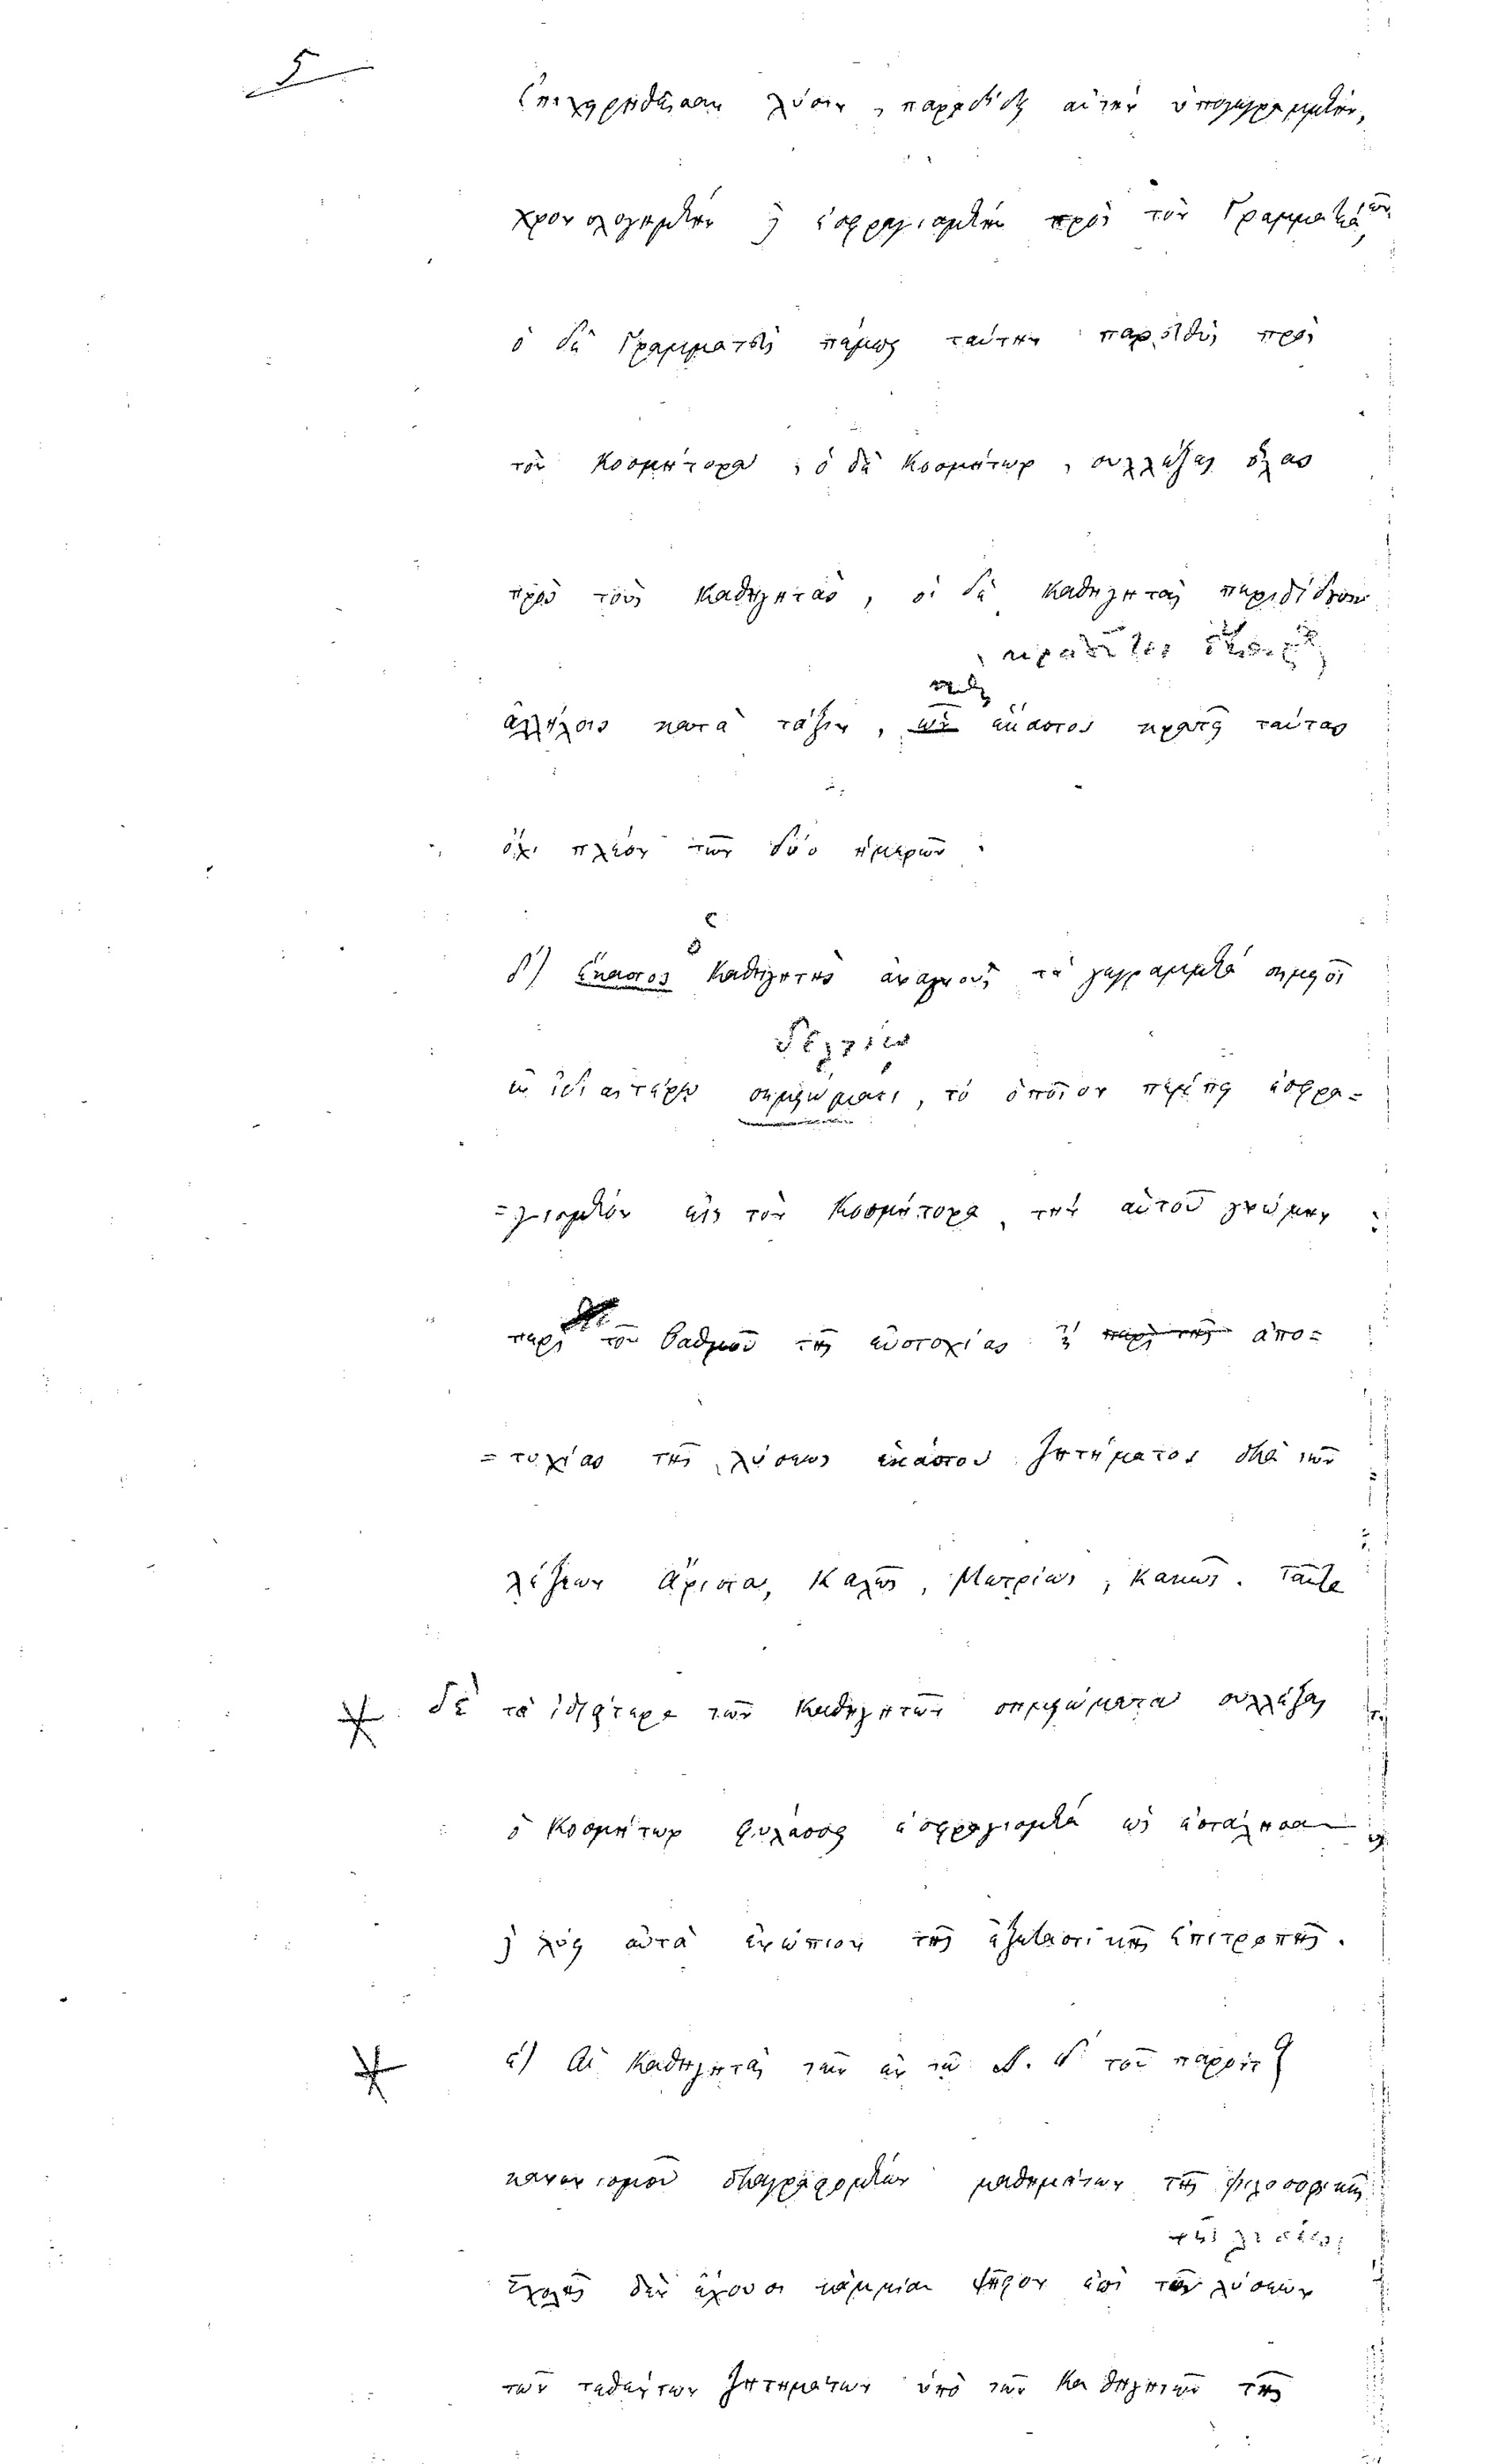 5
ἐπιχειρηθεῖσαν λύσιν, παραδίδει αὐτὴν ὑπογεγραμμένην,
χρονολογημένην ἢ ἐσφραγισμένην πρὸς τὸν Γραμματέα,
ὁ δὲ Γραμματεὺς πέμπει ταύτην παρευθὺς πρὸς
τὸν Κοσμήτορα, ὁ δὲ Κοσμήτωρ, συλλέξας ὅλας
πρὸς τοὺς Καθηγητάς, οἱ δὲ Καθηγηταὶ παραδίδουσιν
ἀλλήλοις κατὰ τάξιν, ἕκαστος κρατεῖ ταύτας
ὄχι πλέον τῶν δύο ἡμερῶν.
δ') Ἕκαστος Καθηγητὴς ἀναγνοὺς τὰ γεγραμμένα σημειοῖ
δελτίῳ
ἐν ἰδιαιτέρῳ σημειώματι, τὸ ὁποῖον πέμπει ἐσφρα=
=γισμένον εἰς τὸν Κοσμήτορα, τὴν αὐτοῦ γνώμην
περὶ τοῦ βαθμοῦ τῆς εὐστοχίας ἢ περὶ τῆς ἀπο=
=τυχίας τῆς λύσεως ἑκάστου ζητήματος διὰ τῶν
λέξεων Ἄριστα, Καλῶς, Μετρίως, Κακῶς. Ταῦτα
δὲ τὰ ἰδιαίτερα τῶν Καθηγητῶν σημειώματα συλλέξας
ὁ Κοσμήτωρ φυλάσσει ἐσφραγισμένα ὡς ἐστάλησαν
ἢ λύει αὐτὰ ἐνώπιον τῆς ἐξεταστικῆς ἐπιτροπῆς.
ε') Οἱ Καθηγηταὶ τῶν ἐν τῷ τοῦ παρόντος
κανονισμοῦ διαγραφομένων μαθημάτων τῆς φιλοσοφικῆς
Σχολῆς δὲν ἔχουσι κἀμμίαν ψῆφον ἐπὶ τῶν λύσεων
τῶν τεθέντων ζητημάτων ὑπὸ τῶν Καθηγητῶν τῆς